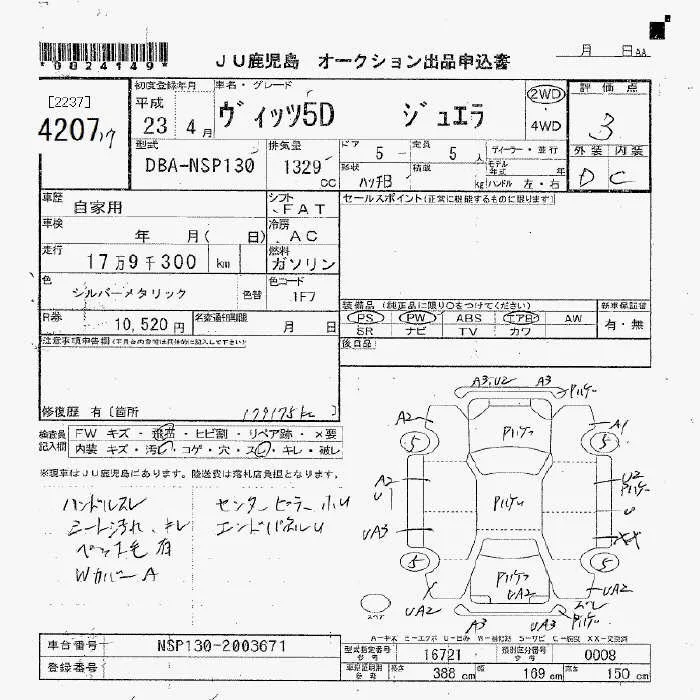 *0824149*
JU鹿児島 オークション出品申込書
月 日AA
[2237]
4207
初度登録年月
平成
23 4月
車名・グレード
ヴィッツ5D ジュエラ
2WD
4WD
評価点
3
外装 内装
D C
型式
DBA-NSP130
排気量
1329
CC
ドア
5
定員
5 人
形状
ハッチB
積載
kg
ディーラー・並行
モデル年式 年
ハンドル 左・右
車歴
自家用
シフト
FAT
車検
年 月( 日)
冷房
AC
走行
17万9千300 km
燃料
ガソリン
色
シルバーメタリック
色替
色コード
1F7
R券
10,520円
名変通知期限
月 日
セールスポイント(正常に機能するものに限ります)
装備品(純正品に限り○をつけてください)
PS PW ABS エアB AW
SR ナビ TV カワ
新車保証書
有・無
後日品
注意事項申告欄
修復歴 有[箇所
179175km
検査員
記入欄
FW キズ・飛石・ヒビ割・リペア跡・×要
内装 キズ・汚れ・コゲ・穴・スレ・キレ・破レ
※現車はJU鹿児島にあります。陸送費は落札店負担となります。
ハンドルスレ
シート汚れ、キレ
ペット毛有
WカバーA
センターピラー小U
エンドパネルU
A3.U2 A3 パルケー
A2 A1
5 5
パルケー
A2
U
UA3
パルケー
U2
パルケー
U
XX
5 5
パルケー
UA2
X
UA2
UA2
スペア
A3 UA3
スレ
パルケー
車台番号
NSP130-2003671
登録番号
型式指定番号
参考
16721
類別区分番号
参考
0008
車庫証明用
参考
長さ 388 cm
幅 169 cm
高さ 150 cm